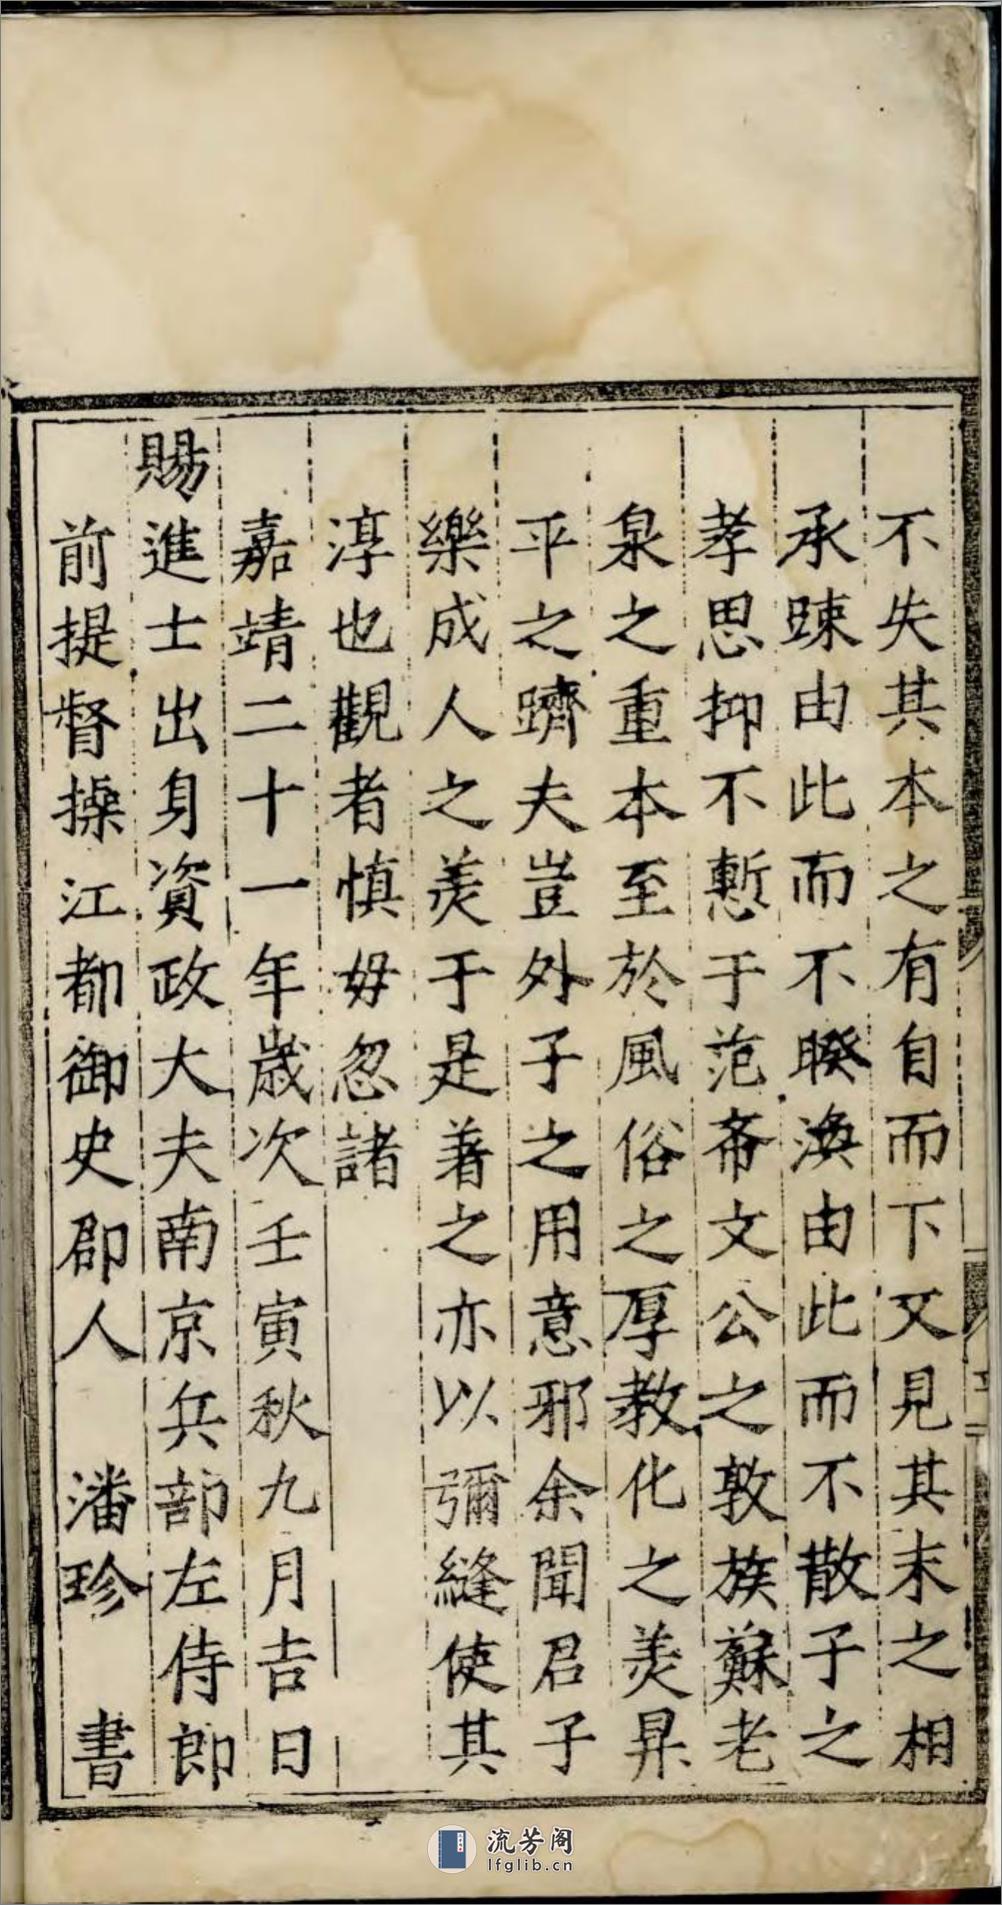 不失其本之有自而下又見其末之相
承踈由此而不睽渙由此而不散子之
孝思抑不慙于范希文公之敦族蘇老
泉之重本至於風俗之厚教化之美昇
平之躋夫豈外子之用意邪余聞君子
樂成人之美于是著之亦以彌縫使其
淳也觀者慎毋忽諸
嘉靖二十一年歲次壬寅秋九月吉日
賜進士出身資政大夫南京兵部左侍郎
前提督操江都御史郡人 潘珍 書
流芳阁
lfglib.cn